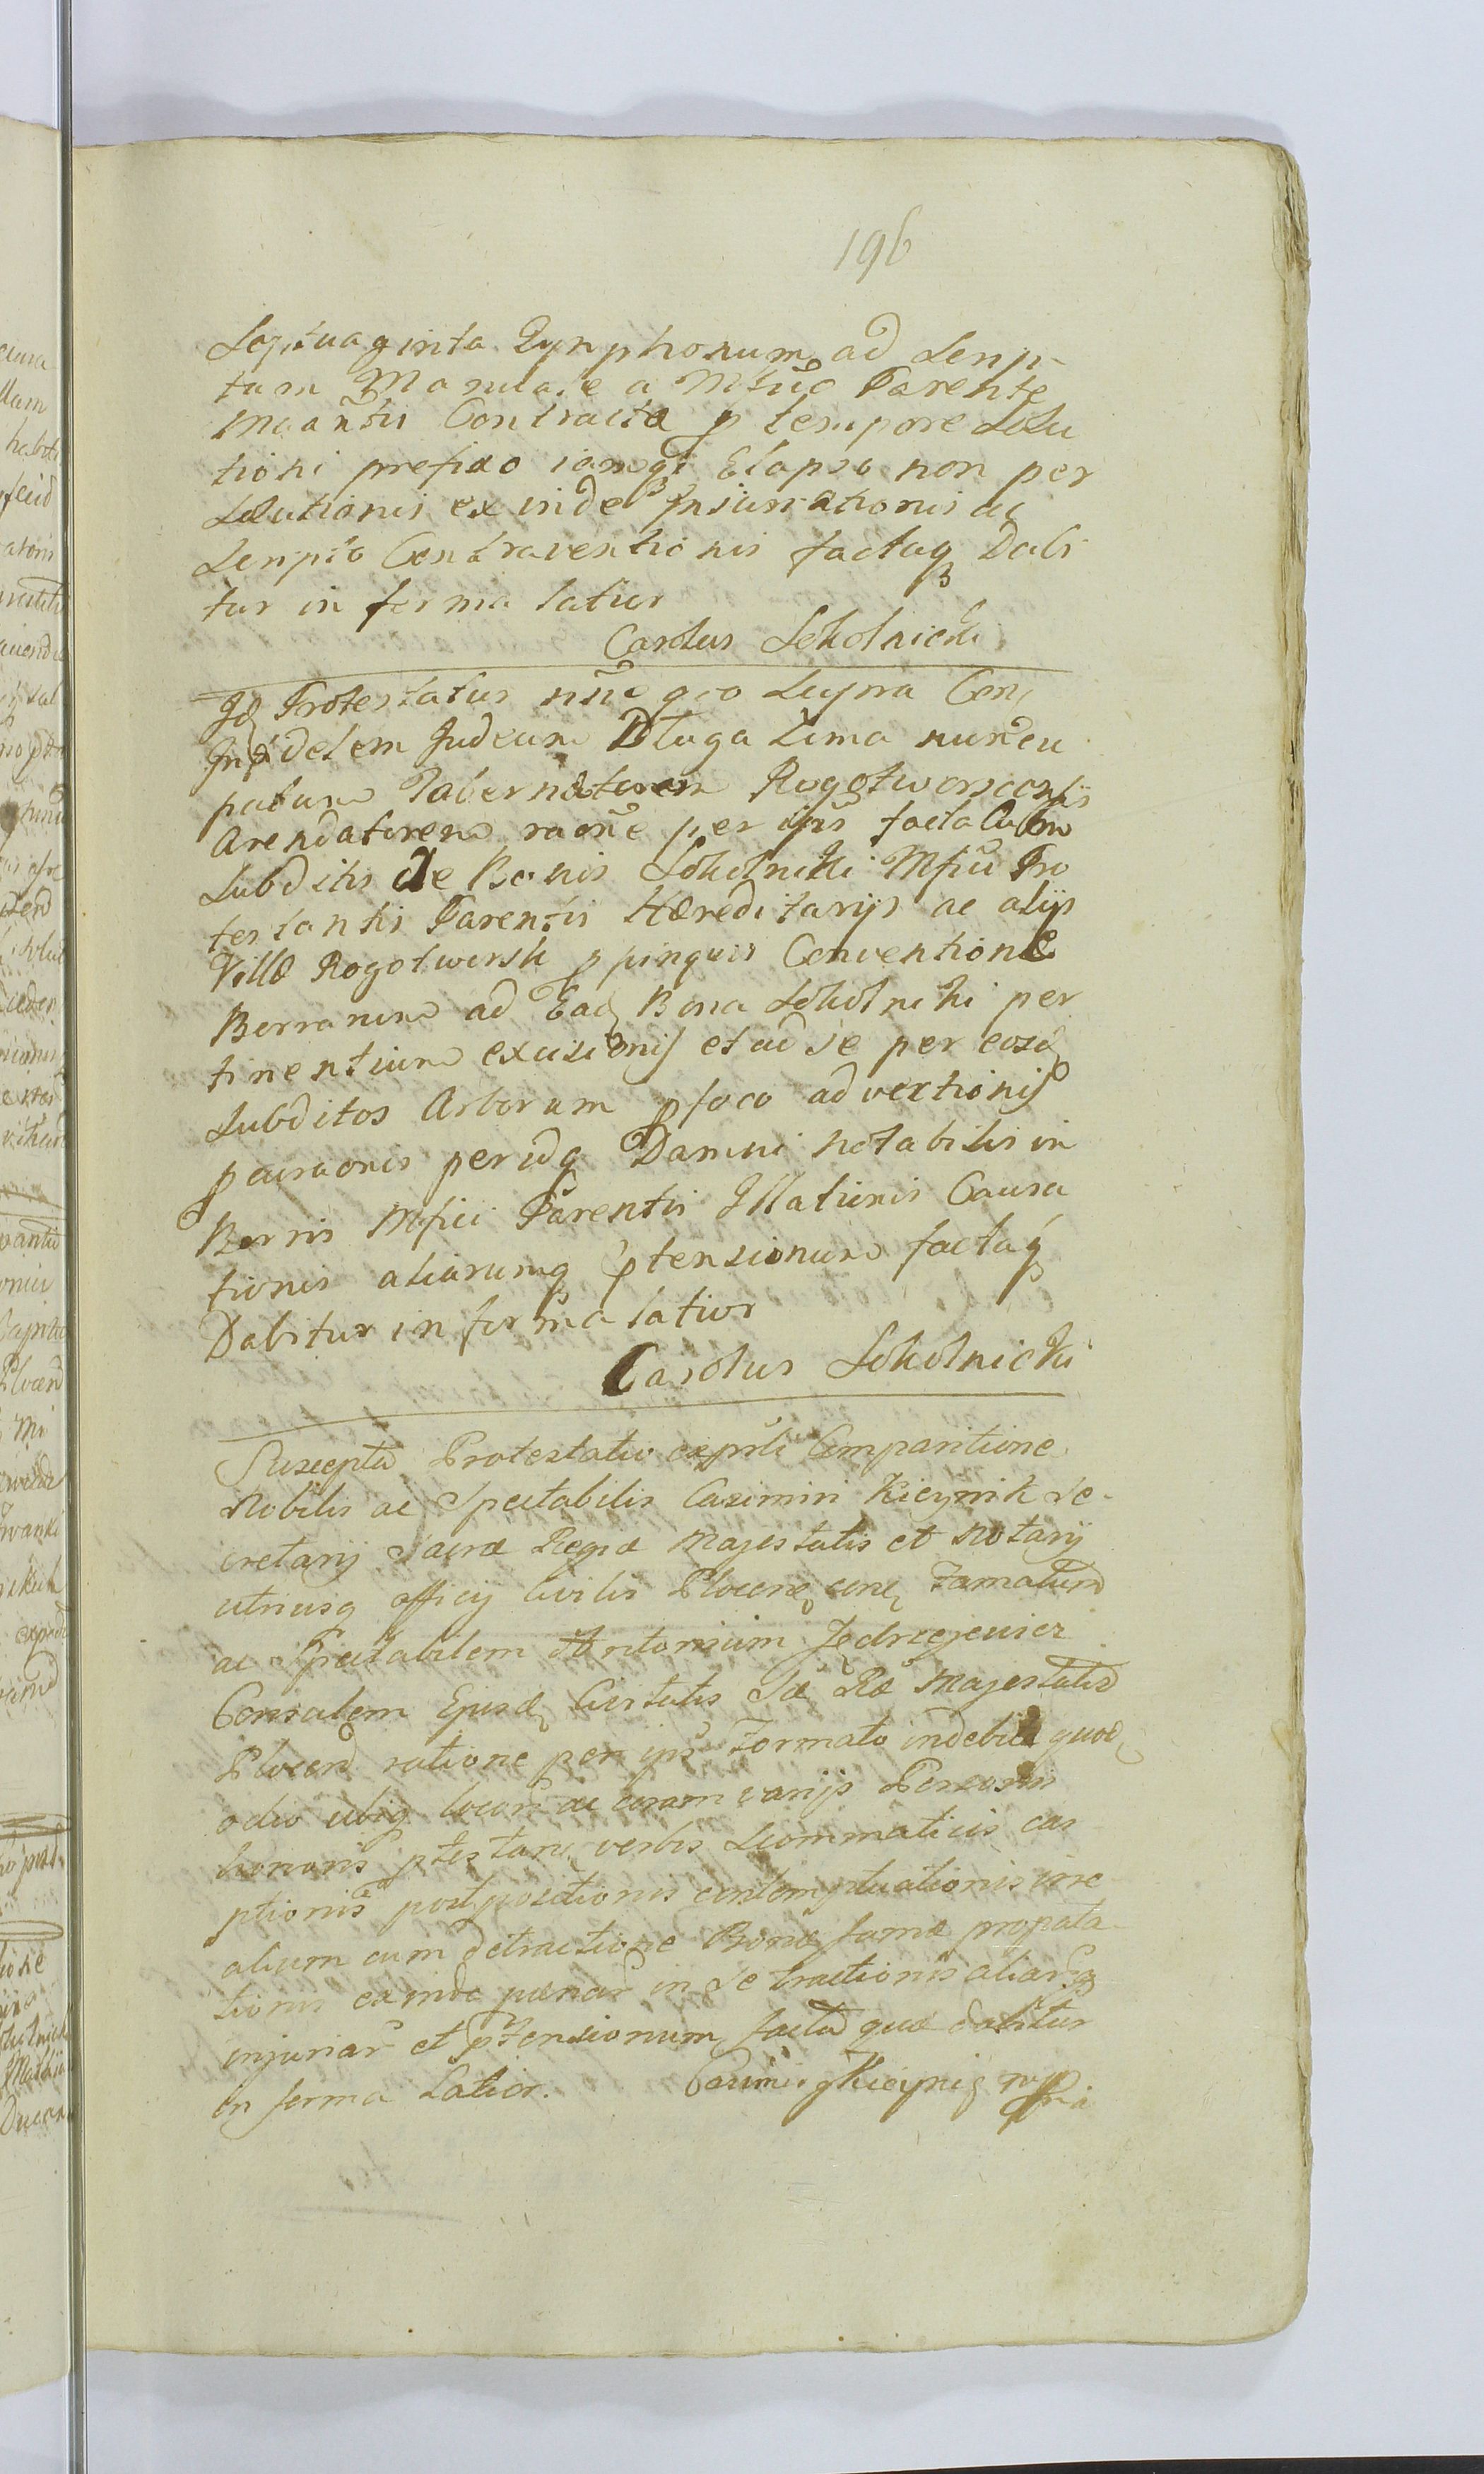 196
Septuaginta Tynphonum ad Scrip-
tum Manuale a Mfico Parente
Contracta p tempore Solu
tioni prefixo iamqz Elapso non per
Solutionis ex inde ac
Scripto Contraventionis factaqz Dabi
tur in forma latior
Carolus Sokolnicki
Id Protestatur nne quo supra Con
Infidelem Judeum Dluga Zima nuncu
patum Tabernatorem Rogotworscensis
Arendatorem raone per ips facta Cum
Subditis de Bonis Sokolniki Mfici Pro
testantis Parentis Hæreditarys ac alijs
Villæ Rogotworsk p pinquis Conventione
Borrarum ad Ead Bona Sokolniki per
tinentium excisionis et ad se per eosd
Subditos Arborum p foco advectionis
peuraonis per idq Damni notabilis in
Borris Mfici Parentis Illationis Causa
tionis aliarumq ptensionum factaq
Dabitur in forma latior
Carolus Sokolnicki
Suscepta Protestatio exprli Comparitione
Nobilis ac Spectabilis Casimiri Kicynik Se-
cretarij Sacræ Regiæ Majestatis et Notarij
utriusq officij Civilis Plocen con Famatum
ac Spectabilem Antonium Jędrzejewicz
Consulem Ejusd Civitatis Sæ Ræ Majestatis
Plocen ratione per ips Formato indebite quod
odio ubiq locor ac coram varijs Personis
honoris ptestanc verbis Scommaticis cap
ptionis postpositionis contemptuationis irre
alium cum detractione Bonæ famæ propala-
tionis exinde pænar in se tractionis aliarqz
injuriar et ptensionum facta quæ dabitur
in forma Latior. Casimir Kicynig mpria